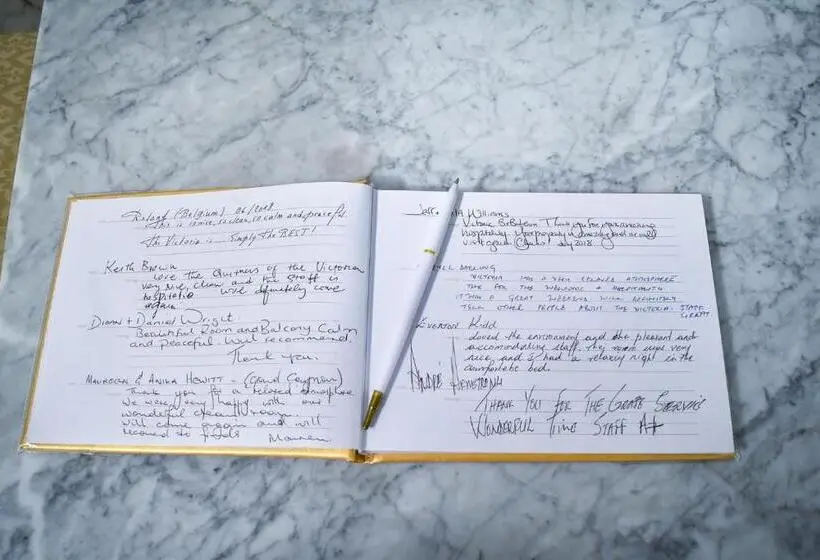 (Belgium) 06/2018
This is , so clean, so calm and peaceful.
The Victoria is Simply the BEST!
Keith Brown
Love the Quitness of the Victoria
very nice, clean and the staff is
hospitable will definitely come
again
Diann + Daniel Wright
Beautiful Room and Balcony Calm
and peaceful. Will recommend.
Thank you.
Maureen & Anika Hewitt - (Grand Cayman)
Thank you for a relaxed atmosphere
We were very happy with our
wonderful clean room.
Will come again and will
recomend to friends Maureen
Williams
Thank you for your amazing
hospitality Your property is amazing and we will
visit again July 2018
DARLING
VICTORIA HAS A VERY ATMOSPHERE
FOR THE WELCOME & HOSPITALITY
IT WAS A GREAT WEEKEND WILL DEFINITELY
TELL OTHER PEOPLE ABOUT THE VICTORIA. STAFF
GREAT
Everton Kidd
Loved the environment and the pleasant and
accommodating staff. The room was very
nice and I had a relaxing night in the
comfortable bed.
ANDRÉ ARMSTRONG
THANK YOU FOR THE GREAT SERVICE
WONDERFUL TIME STAFF A+